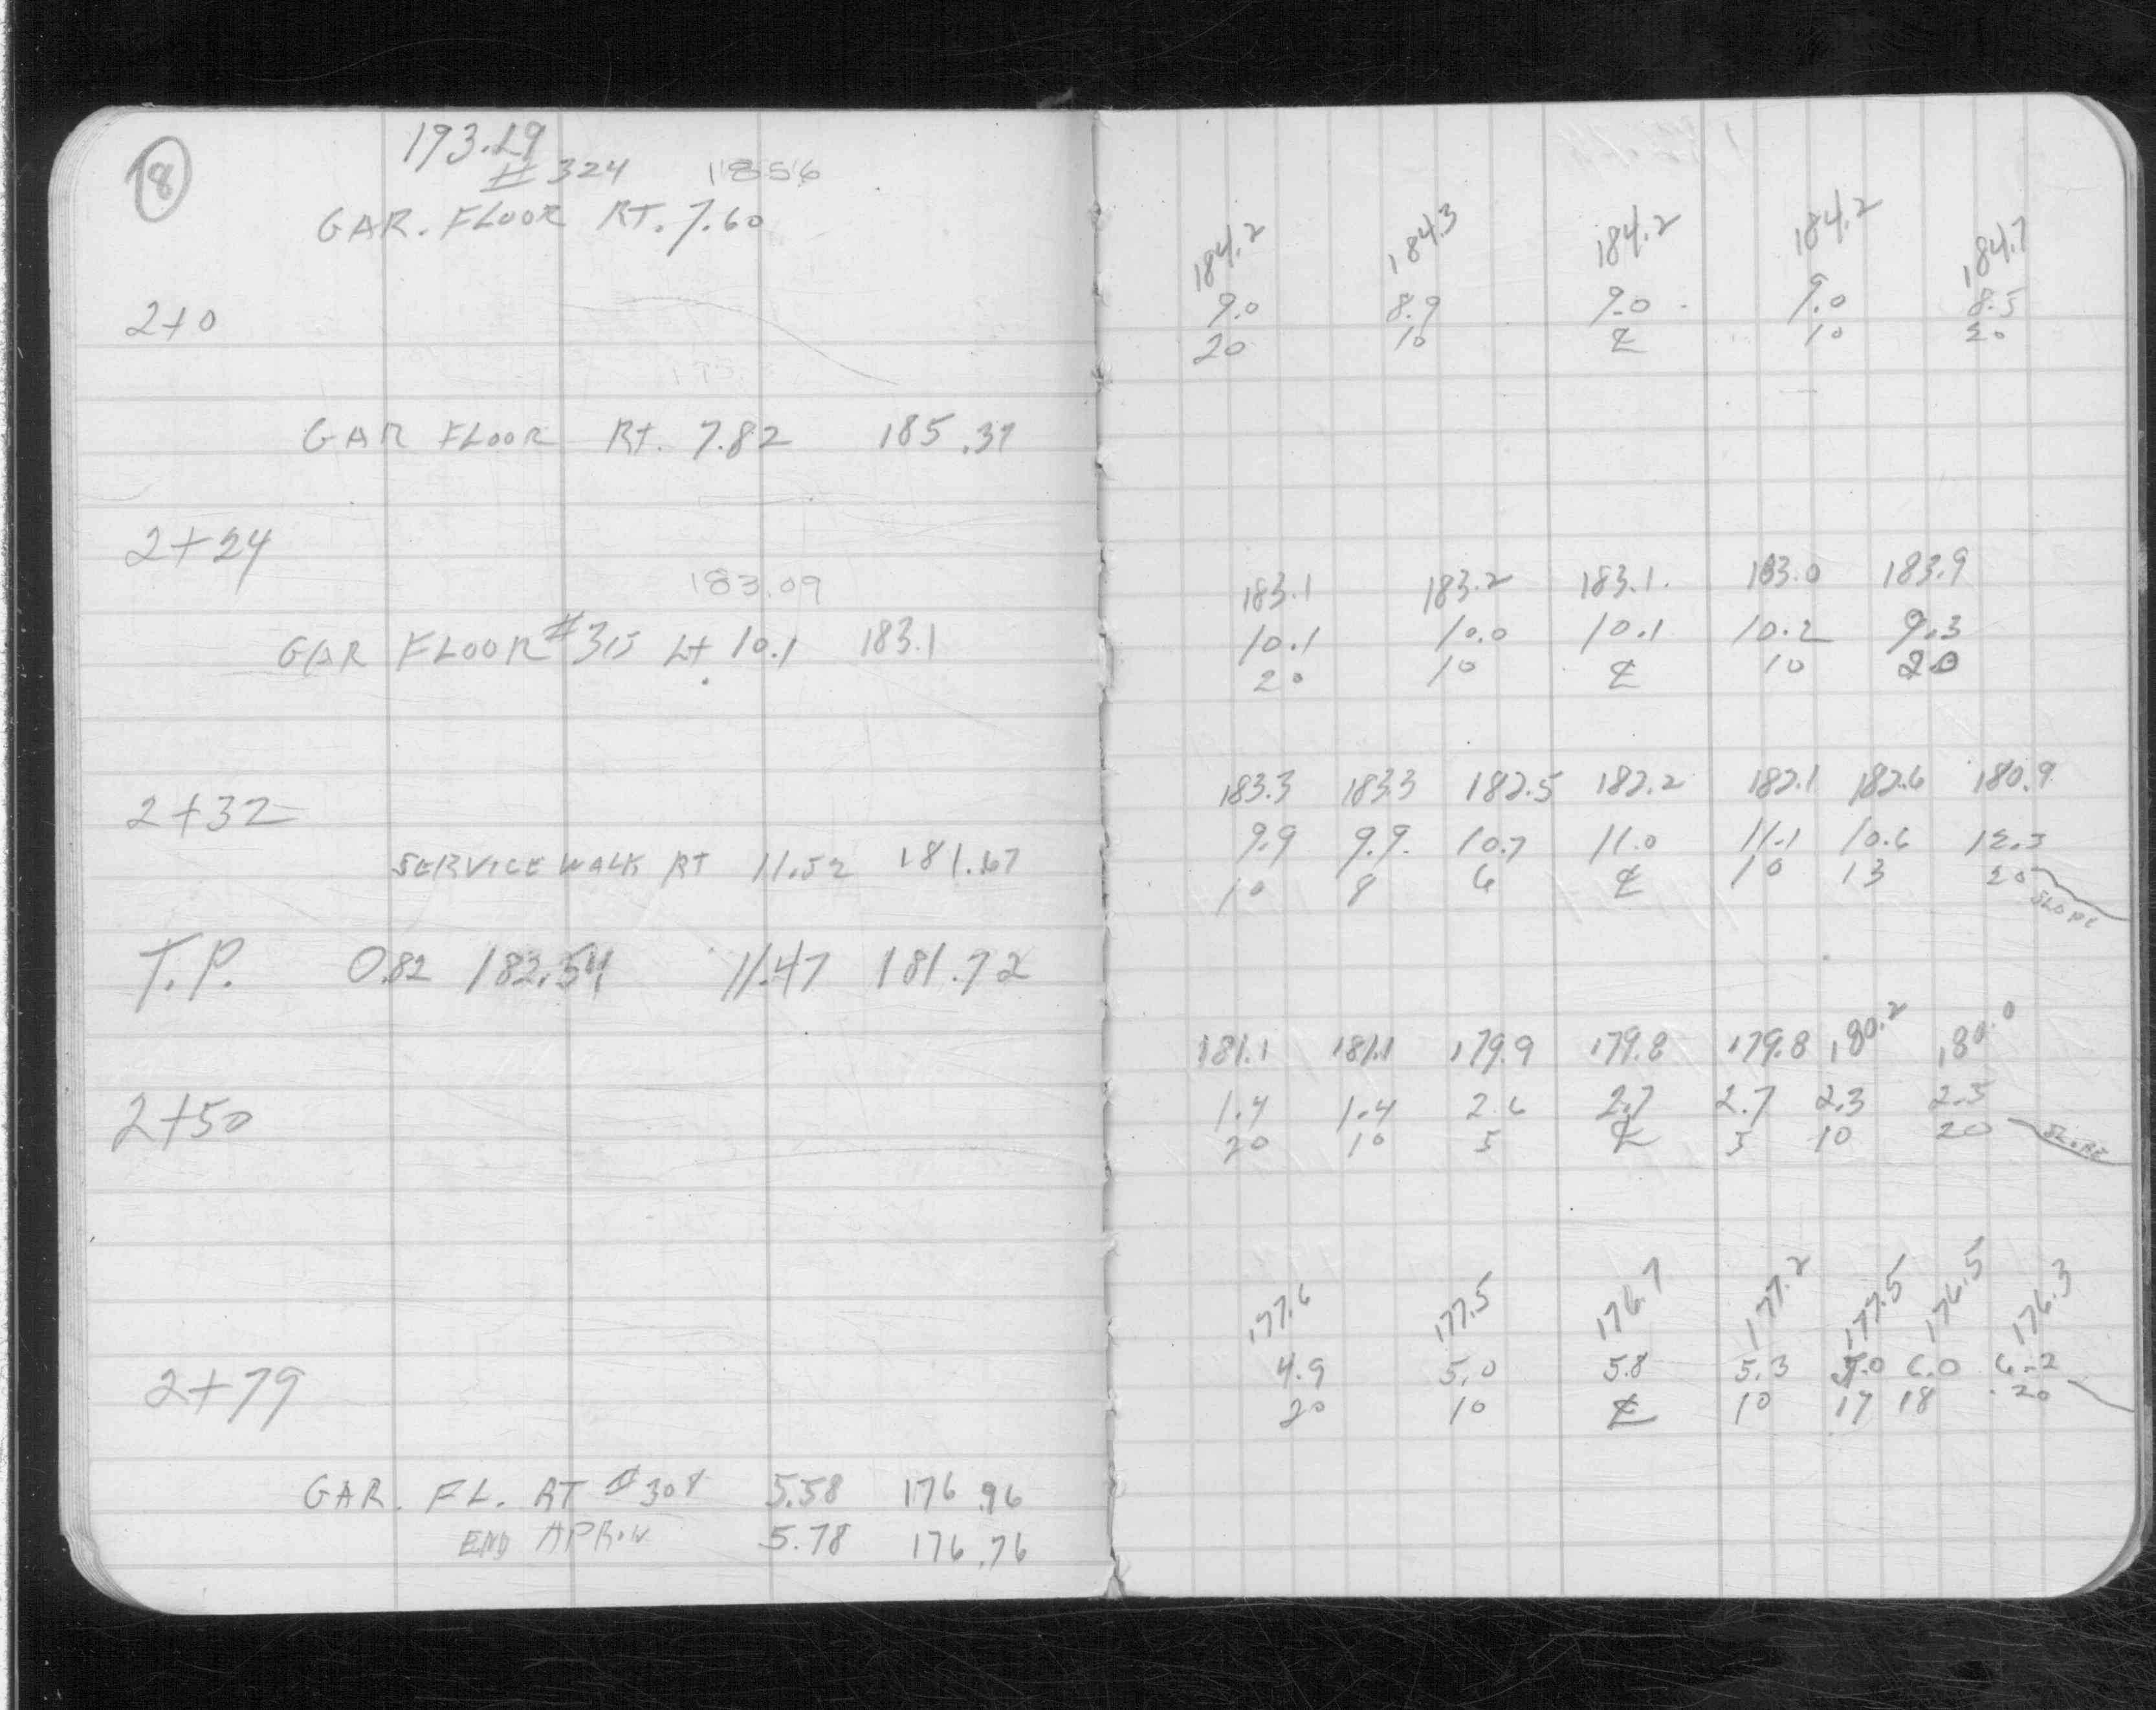 8
193.19
# 324 1856
GAR. FLOOR RT. 7.60
2+0
GAR FLOOR RT. 7.82 185.37
2+24
183.09
GAR FLOOR #315 Lt 10.1 183.1
2+32
SERVICE WALK RT 11.52 181.67
T.P. 0.82 182.54 11.47 181.72
2+50
2+79
GAR. FL. RT #308 5.58 176.96
END APRON 5.78 176.76
184.2 184.3 184.2 184.2 184.7
9.0 8.9 9.0 9.0 8.5
20 10 ℄ 10 20
183.1 183.2 183.1 183.0 183.9
10.1 10.0 10.1 10.2 9.3
20 10 ℄ 10 20
183.3 183.3 182.5 182.2 182.1 182.6 180.9
9.9 9.9 10.7 11.0 11.1 10.6 12.3
10 8 6 ℄ 10 13 20
SLOPE
181.1 181.1 179.9 179.8 179.8 180.2 180.0
1.4 1.4 2.6 2.7 2.7 2.3 2.5
20 10 5 ℄ 5 10 20 SLOPE
177.6 177.5 176.7 177.2 177.5 176.5 176.3
4.9 5.0 5.8 5.3 5.0 6.0 6.2
20 10 ℄ 10 17 18 20